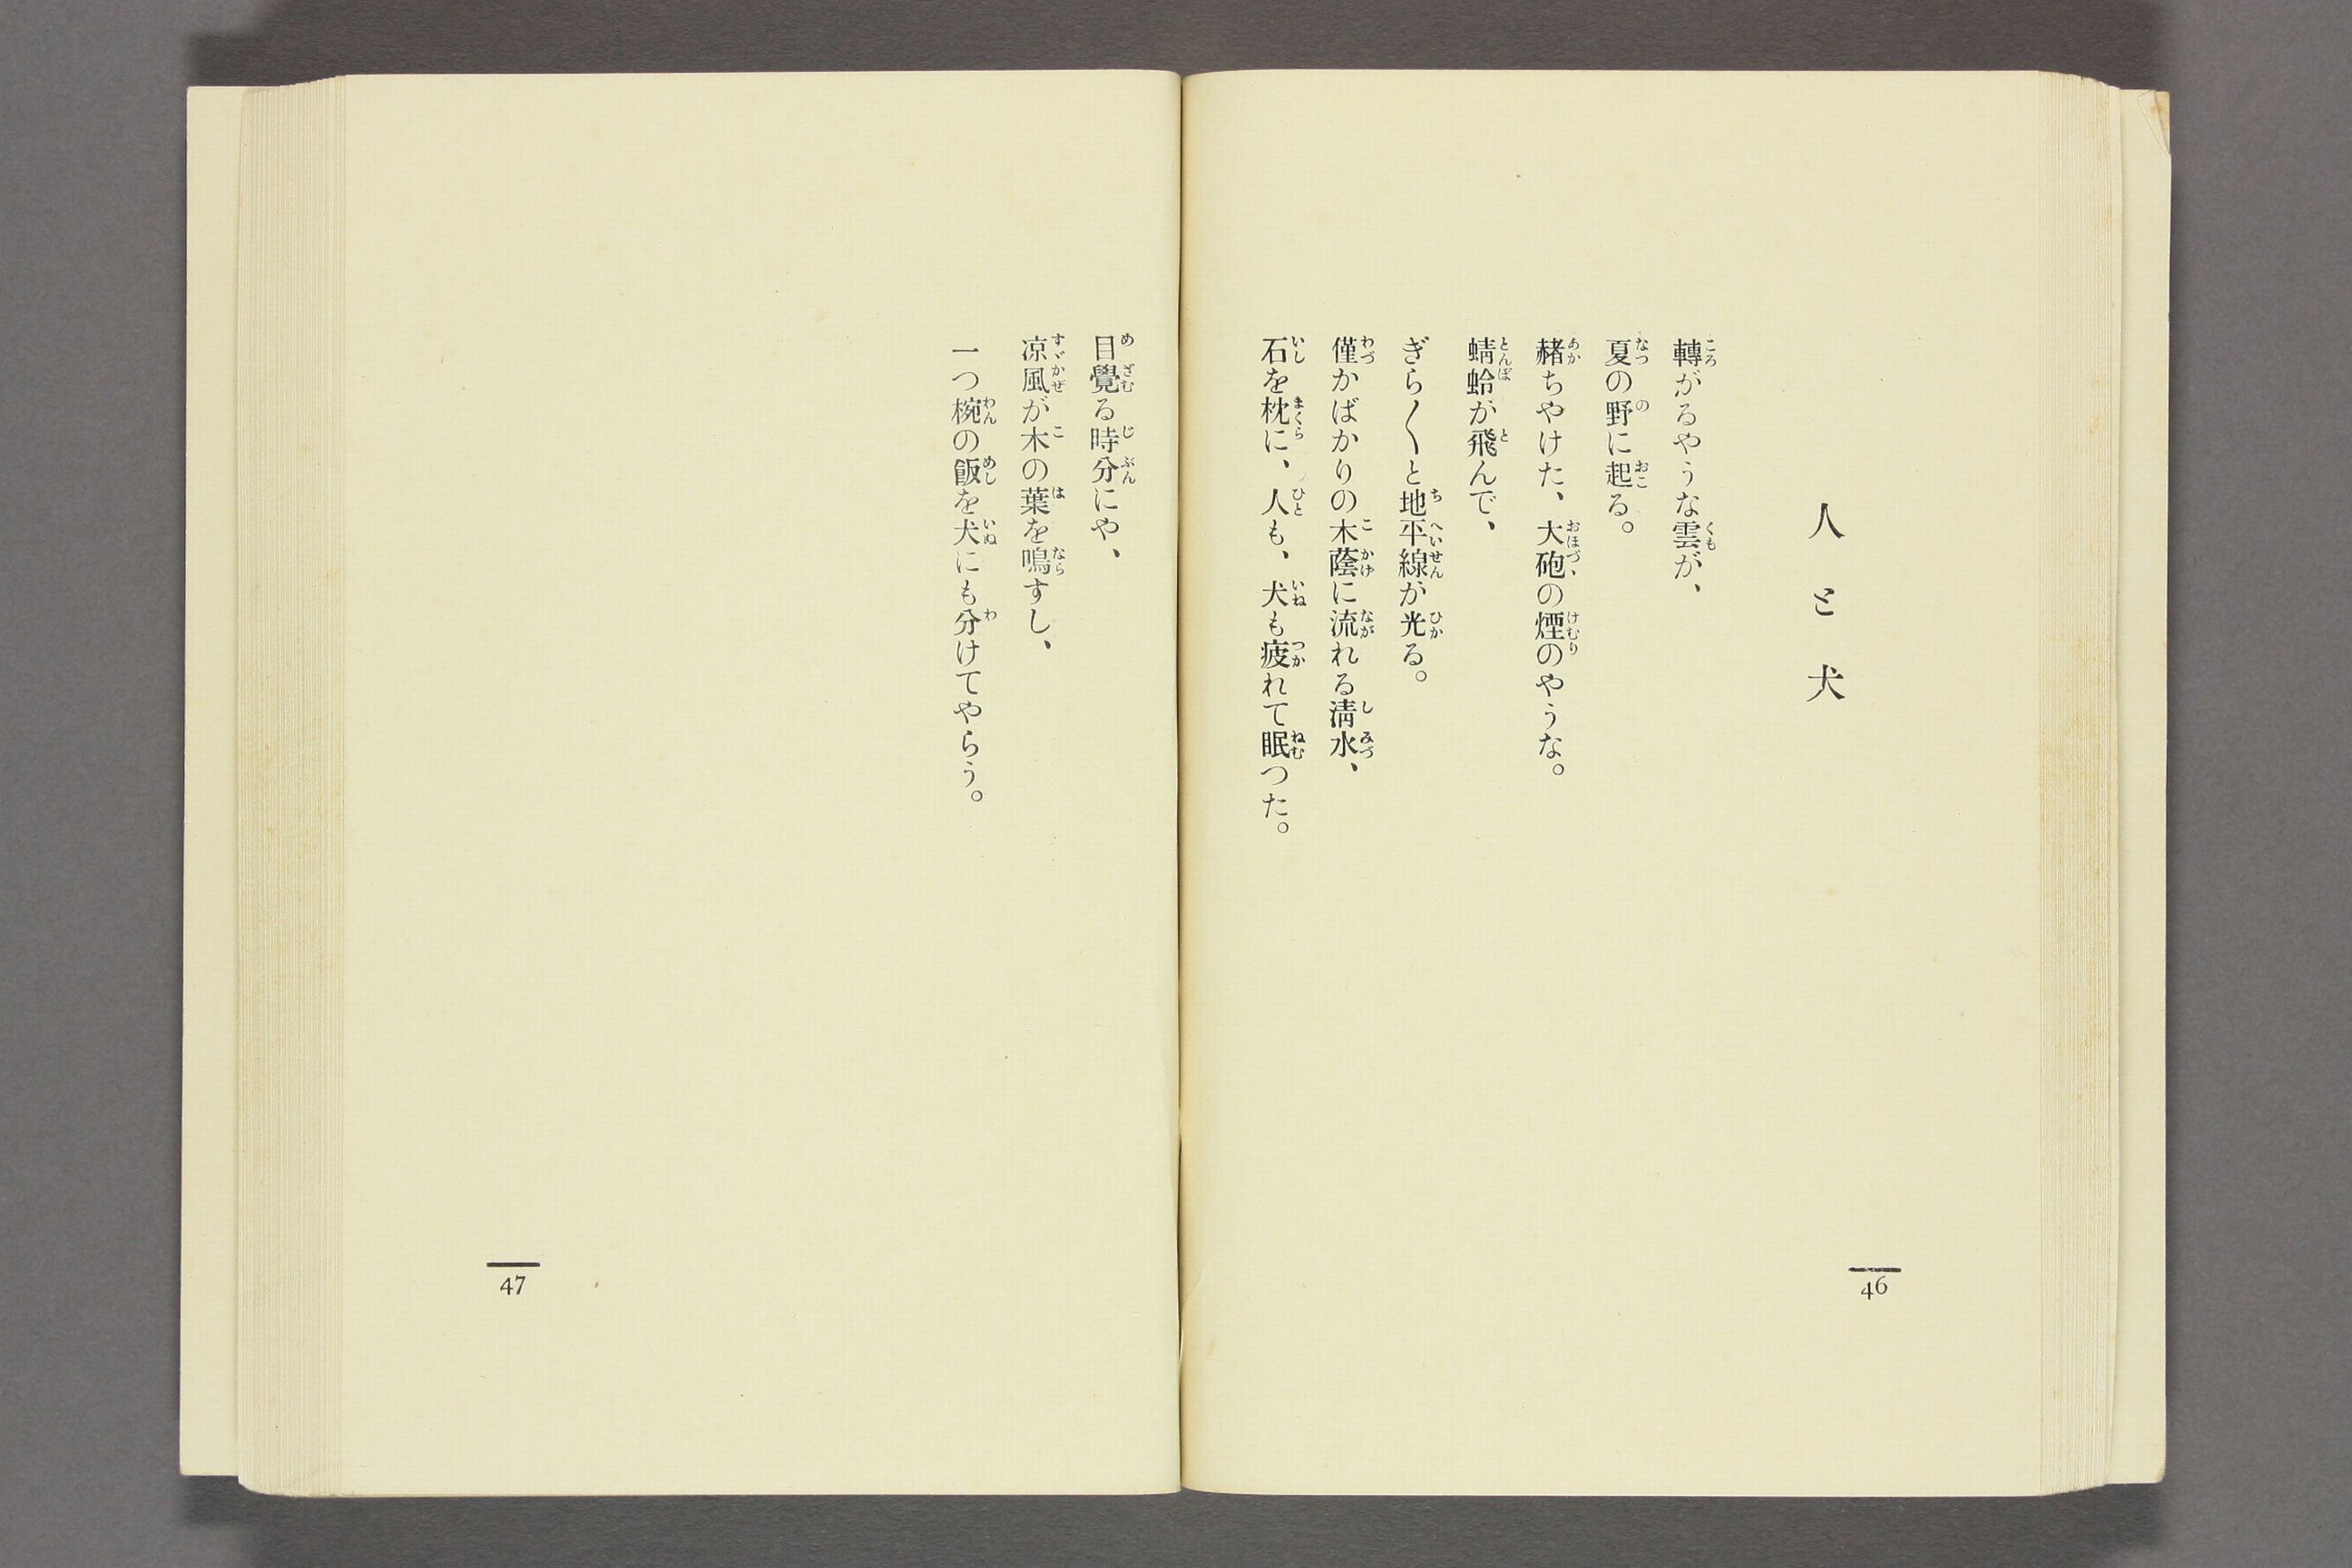 人と犬
轉がるやうな雲が、
夏の野に起る。
赭ちやけた、大砲の煙のやうな。
蜻蛉が飛んで、
ぎら〱と地平線が光る。
僅かばかりの木蔭に流れる淸水、
石を枕に、人も、犬も疲れて眠つた。
46
目覺る時分にや、
凉風が木の葉を鳴すし、
一つ椀の飯を犬にも分けてやらう。
47